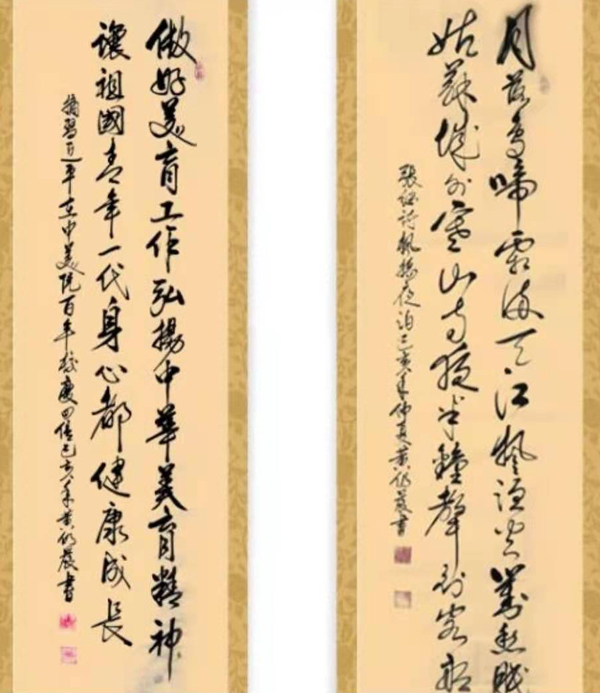 做好美育工作弘揚中華美育精神
讓祖國青年一代身心都健康成長
摘習近平在中美院百年校慶回信己亥年黃晨書
月落烏啼霜滿天江楓漁火對愁眠
姑蘇城外寒山寺夜半鐘聲到客船
張繼詩楓橋夜泊己亥年仲夏黃晨書